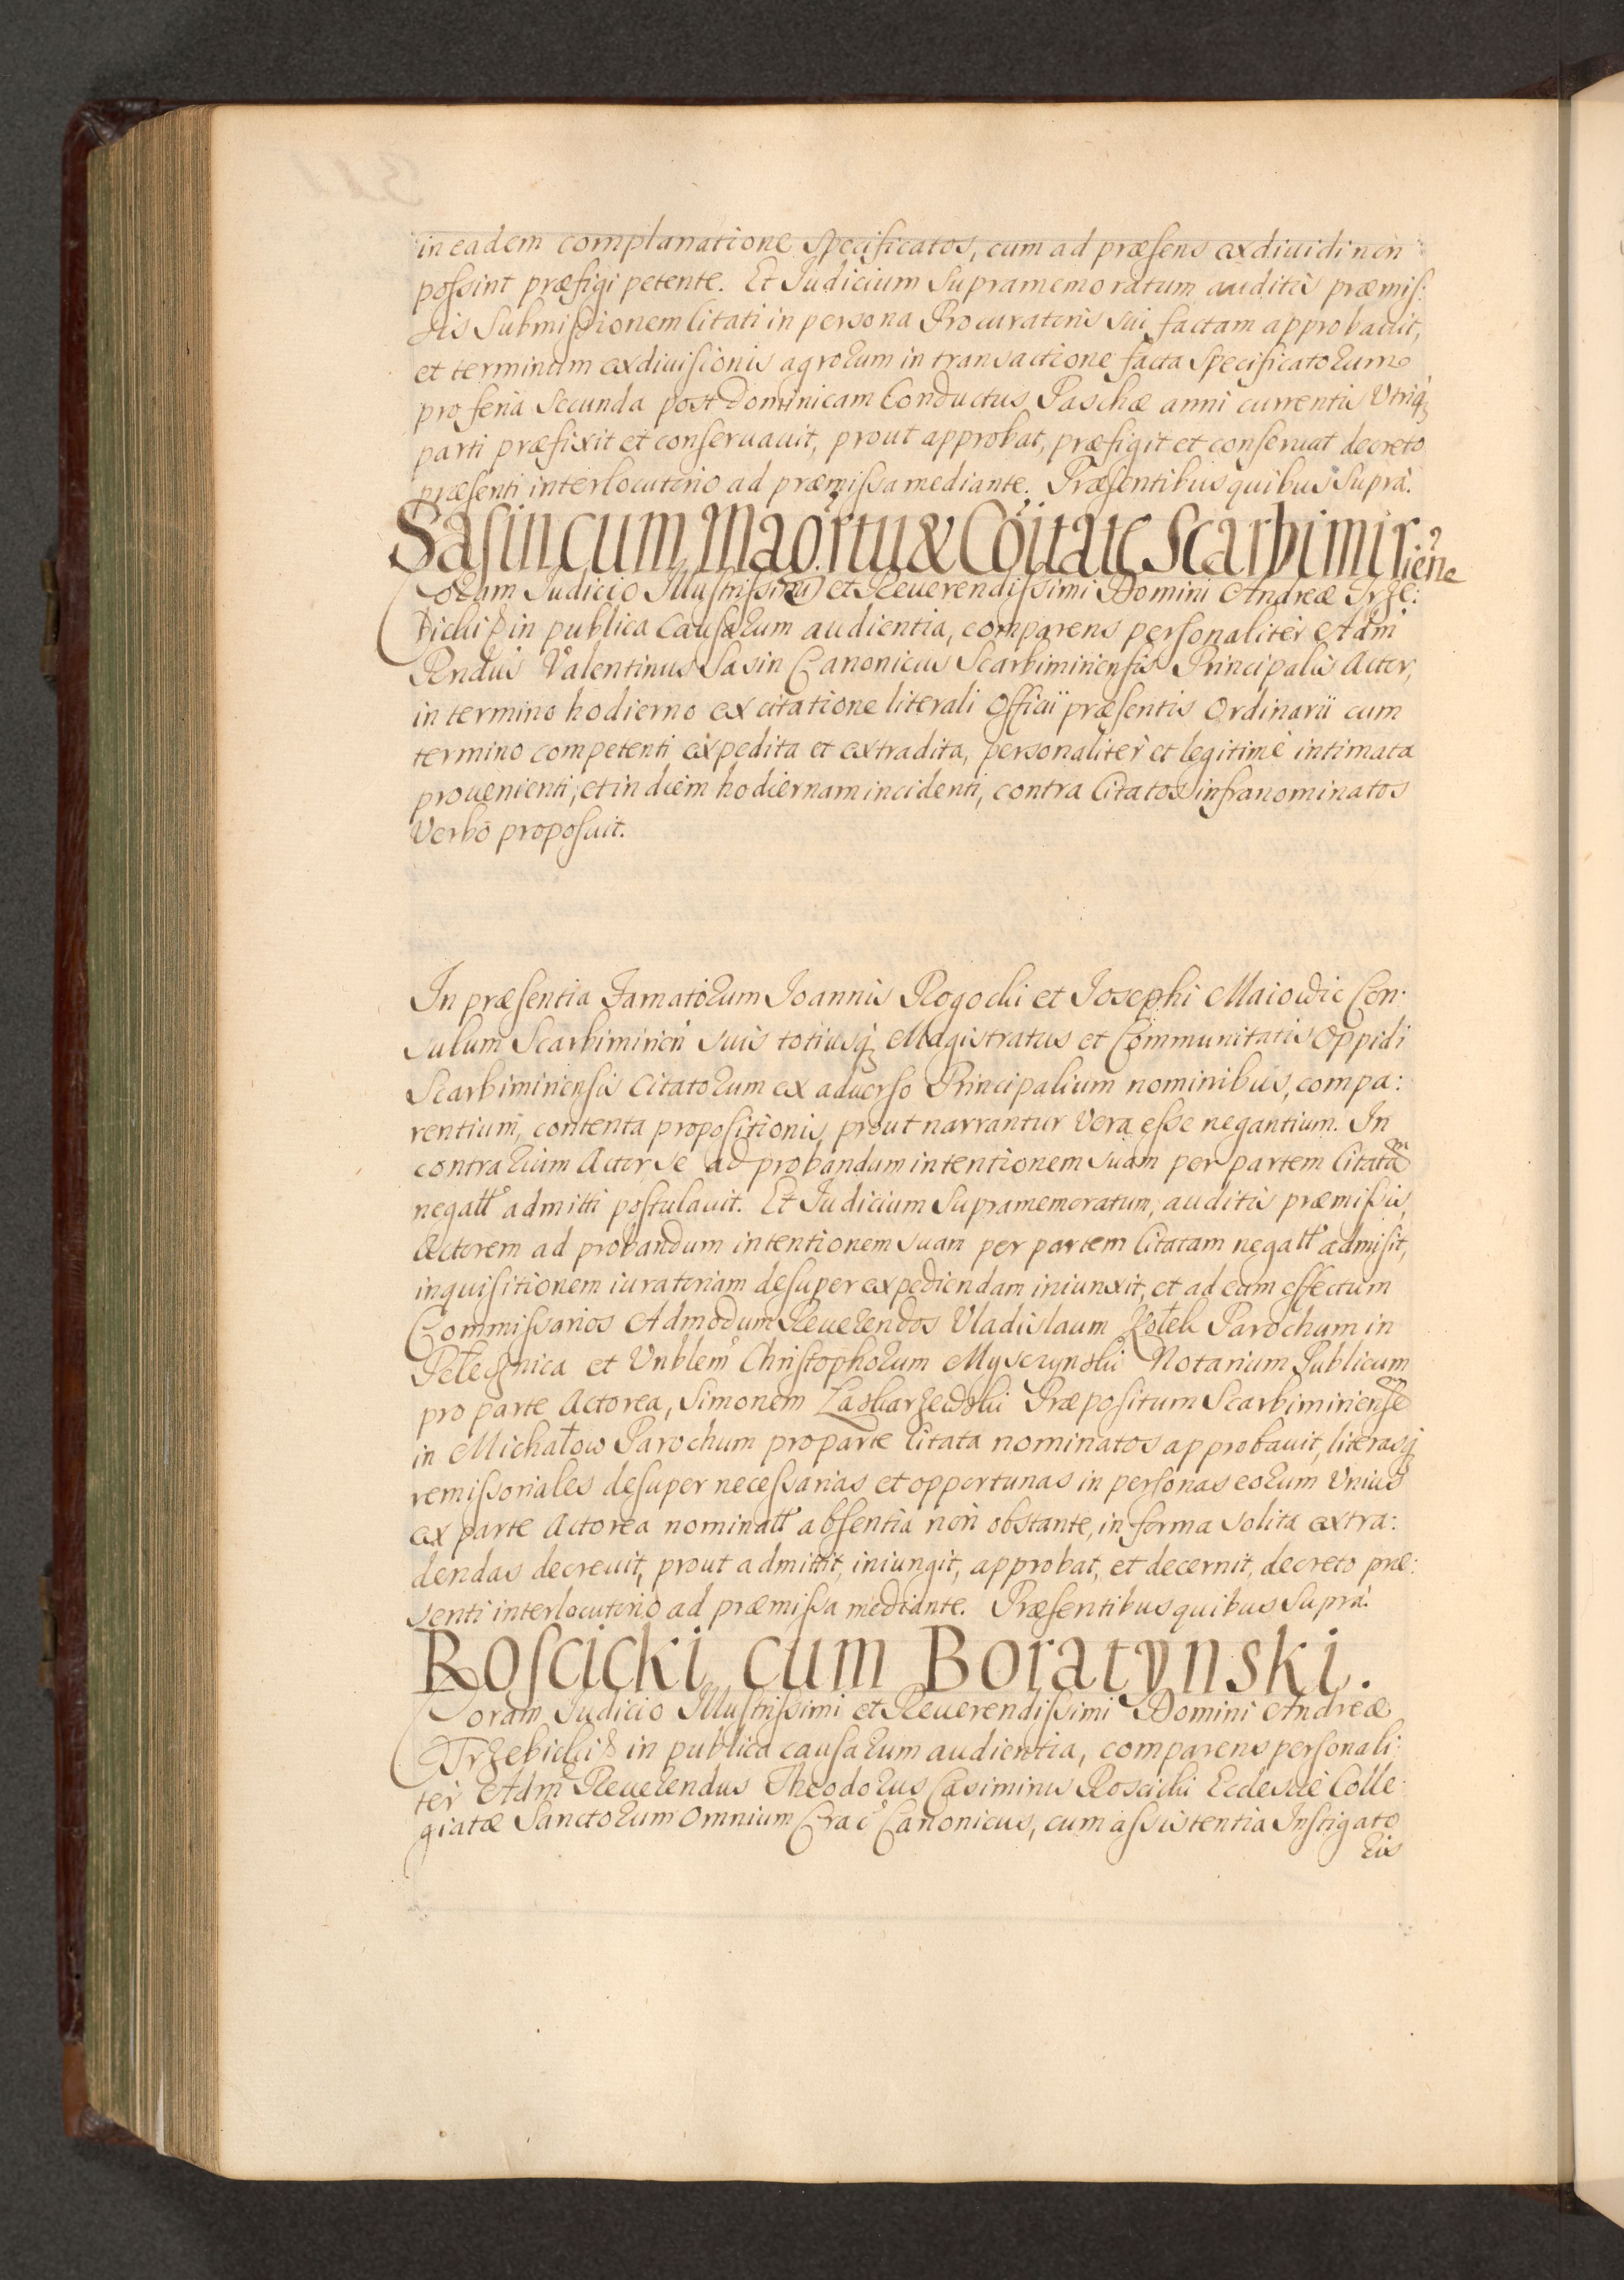 in eadem complanatione specificatos, cum ad præsens exdiuidi non
possint præfigi petente. Et Judicium supramemoratum auditis præmis:
sis submissionem litati in persona Procuratoris sui factam approbauit,
et terminum exdiuisionis agrorum in transactione facta specificatorum
pro feria secunda post Dominicam Conductus Paschæ anni currentis Utriq;
parti præfixit et conseruauit, prout approbat, præfigit et conseruat decreto
præsenti interlocutorio ad præmissa mediante. Præsentibus quibus supra.
Sasin cum Magrtu & Coitate Scarbimiriene
Coram Judicio Illustrissimi et Reuerendissimi Domini Andreæ Trze:
bicki in publica causarum audientia, comparens personaliter Adm
Rndus Valentinus Sasin Canonicus Scarbimiriensis Principalis Actor,
in termino hodierno ex citatione literali Officii præsentis Ordinarii cum
termino competenti expedita et extradita, personaliter et legitime intimata
prouenienti, et in diem hodiernam incidenti, contra Citatos infranominatos
Verbo proposuit.
In præsentia Famatorum Joannis Rogocki et Josephi Maiowic Con:
sulum Scarbimirien suis totiusq; Magistratus et Communitatis Oppidi
Scarbimiriensis Citatorum ex aduerso Principalium nominibus, compa:
rentium, contenta propositionis, prout narrantur Vera esse negantium. In
contrarium Actor se ad probandum intentionem suam per partem Citatam
negatt admitti postulauit. Et Judicium supramemoratum, auditis præmissis,
Actorem ad probandum intentionem suam per partem Citatam negatt admisit,
inquisitionem iuratoriam desuper expediendam iniunxit, et ad eum effectum
Commissarios Admodum Reuerendos Vladislaum Rołek Parochum in
Pełecznica et Vnblem Christophorum Myszynski Notarium Publicum
pro parte Actorea, Simonem Laskarzewski Præpositum Scarbimiriensem
in Michałow Parochum pro parte Citata nominatos approbauit, literasq;
remissoriales desuper necessarias et opportunas in personas eorum Unius
ex parte Actorea nominatt absentia non obstante, in forma solita extra:
dendas decreuit, prout admittit, iniungit, approbat, et decernit, decreto præ:
senti interlocutorio ad præmissa mediante. Præsentibus quibus supra.
Roscicki cum Boratynski.
Coram Judicio Illustrissimi et Reuerendissimi Domini Andreæ
Trzebicki in publica causarum audientia, comparens personali:
ter Adm Reuerendus Theodorus Casimirus Roscicki Ecclesiæ Colle:
giatæ Sanctorum Omnium Crac Canonicus, cum assistentia Instigato
ris